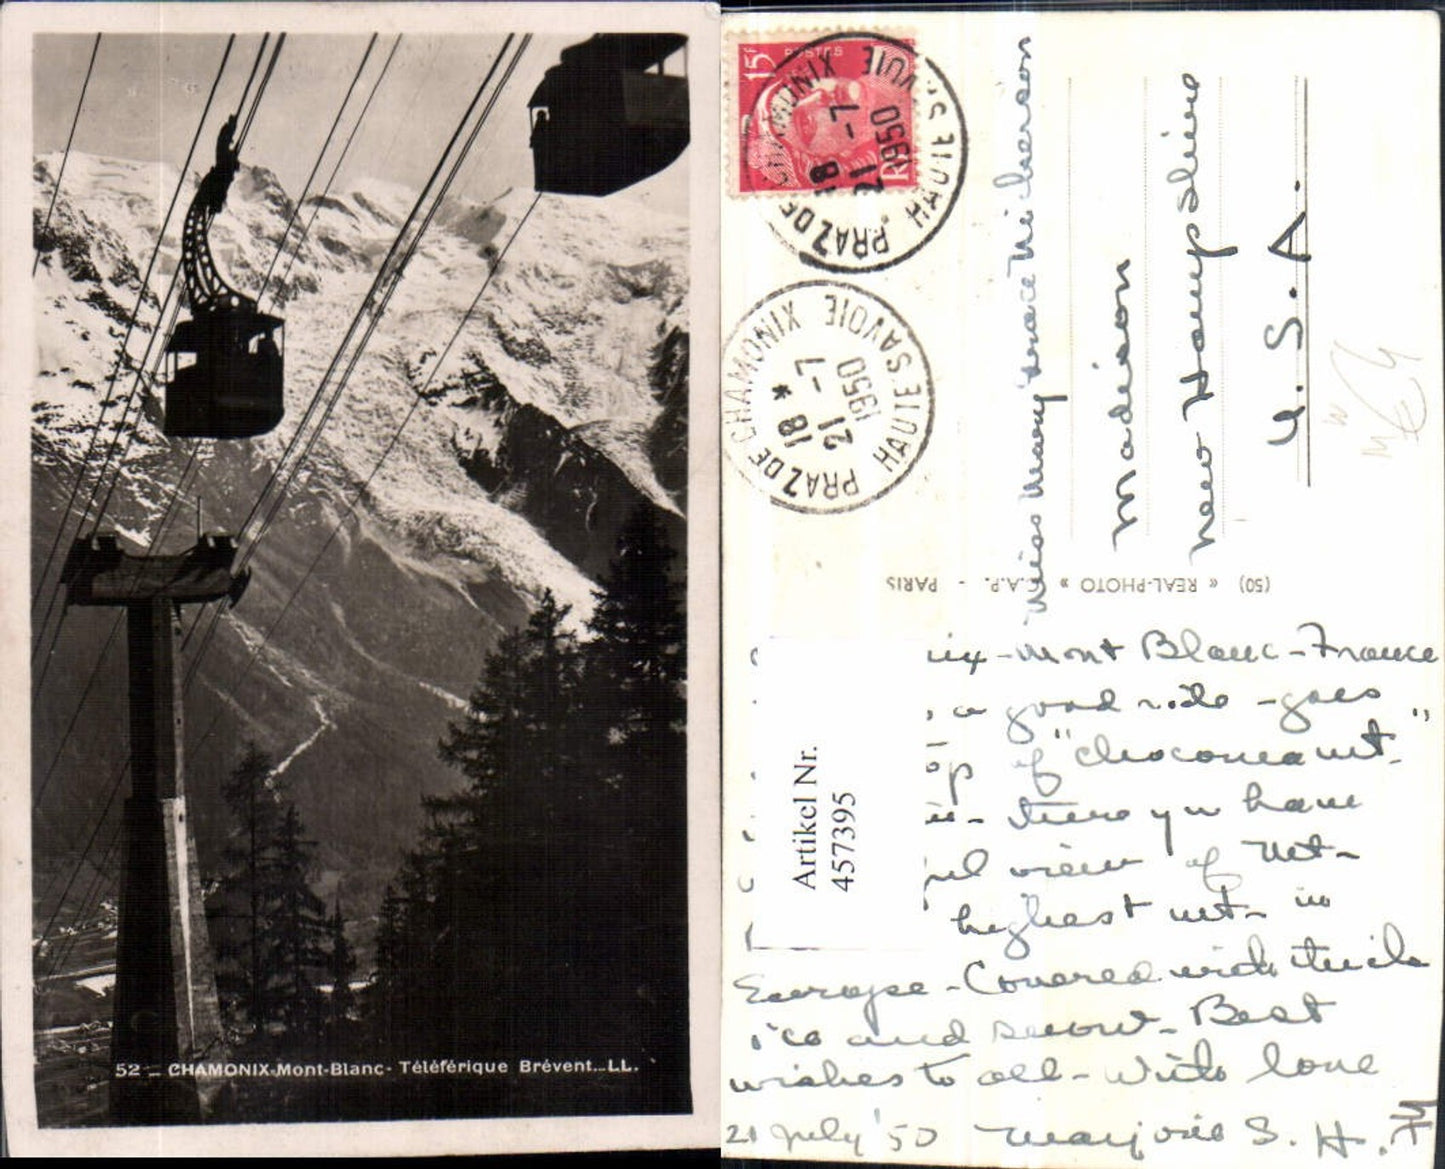 52 _ CHAMONIX-Mont-Blanc- Téléférique Brévent_LL.
POSTES
15F
RF
PRAZ DE CHAMONIX HAUTE SAVOIE
18
21 -7
1950
PRAZ DE CHAMONIX HAUTE SAVOIE
18 *
21 -7
1950
Miss Mary Grace Nickerson
Madison
New Hampshire
U.S.A.
(50) « REAL-PHOTO » C.A.P. - PARIS
Artikel Nr.
457395
ix-Mont Blanc-France
, a good ride -goes
op of "chaconeaut."
- there you have
ful view of Mt-
highest mt- in
Europe - Covered with thick
ice and snow - Best
wishes to all - With love
21 July '50 Marjorie S. H.